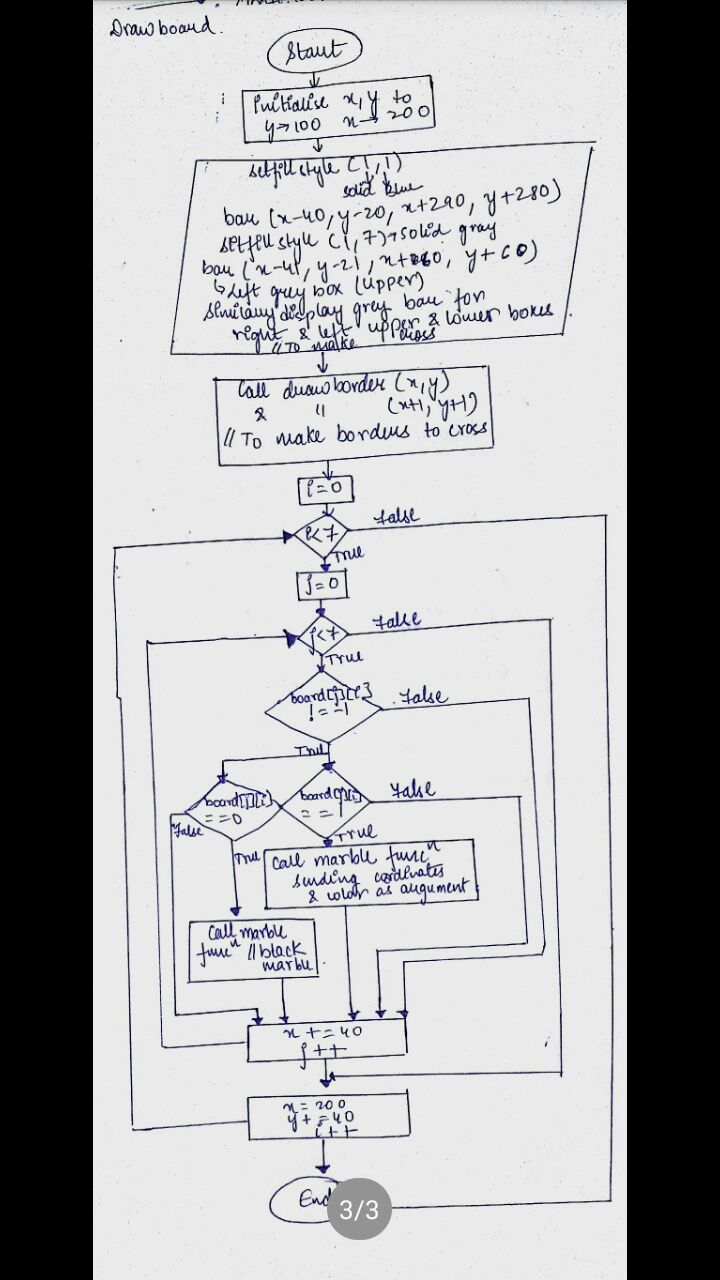 Drawboard.
Start
initialise x, y to
y→100 x→200
setfillstyle (1,1)
solid blue
bar (x-40, y-20, x+290, y+280)
setfillstyle (1,7)→solid gray
bar (x-41, y-21, x+ , y+60)
↳Left grey box (upper)
similarly display grey bar for
right & left upper & lower boxes
// To make cross
Call drawborder (x,y)
& " (x+1, y+1)
// To make borders to cross
i=0
i<7
False
True
j=0
j<7
False
True
board[j][i]
!= -1
False
True
board[j][i]
==0
board[j][i]
== 1
False
False
True
True
Call marble funcⁿ
sending cordinates
& color as argument
Call marble
funcⁿ //black
marble
x+=40
j++
x=200
y+=40
i++
End
3/3